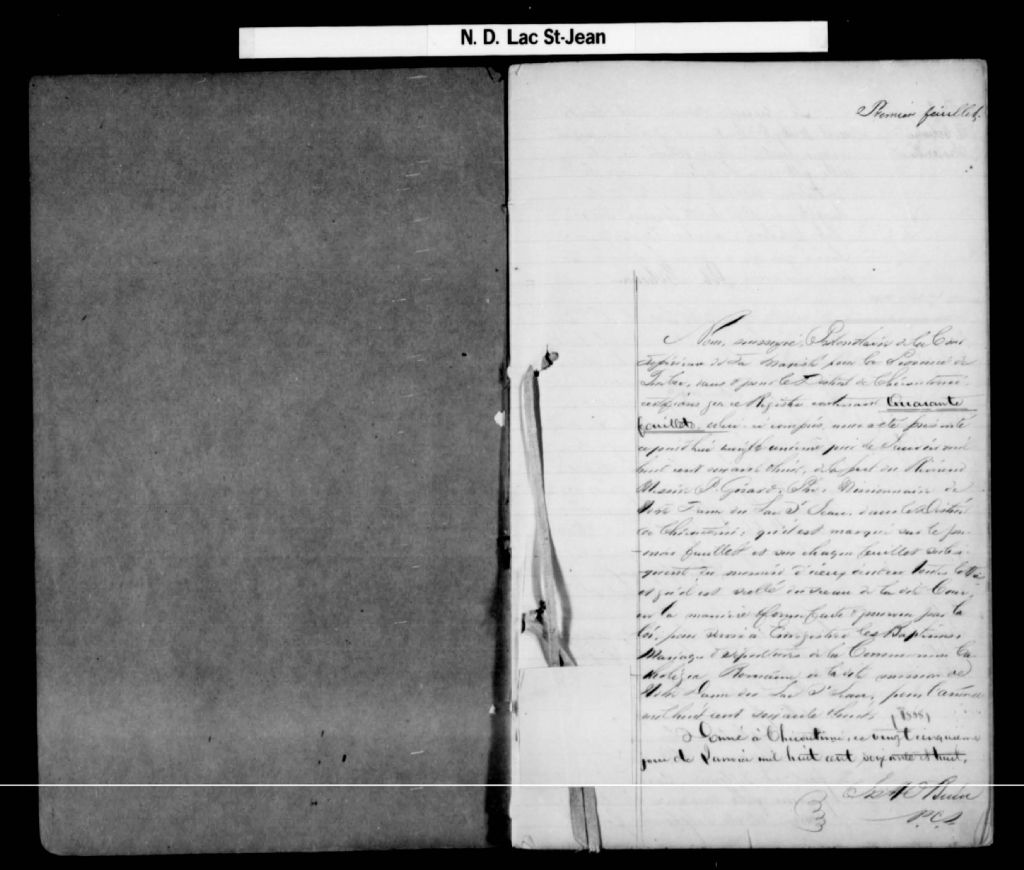 N. D. Lac St-Jean
Premier feuillet,
Nous, soussigné, Protonotaire de la Cour
Supérieure de Sa Majesté pour la Province de
Québec, dans & pour le District de Chicoutimi
certifions que ce Registre contenant Quarante
feuillets, celui-ci compris, nous a été présenté
aujourd'hui vingt jour de Janvier mil
huit cent soixante & huit, de la part du Révérend
Messire P. Girard, Ptre. Missionnaire de
Notre Dame du Lac St Jean, dans le District
de Chicoutimi; qu'il est marqué sur le pre-
-mier feuillet et sur chaque feuillet subsé-
quent du numéro d'iceux en toutes lettres
et qu'il est scellé du sceau de la dite Cour,
en la manière & forme & prévue par la
loi, pour servir à l'enregistrer les Baptêmes
Mariages & Sépultures de la Communion Ca-
tholique Romaine de la dite mission de
Notre Dame du Lac St Jean, pour l'année
mil huit cent soixante & huit,
Donné à Chicoutimi, ce vingt cinquième
jour de Janvier mil huit cent soixante et huit.
P.C.S